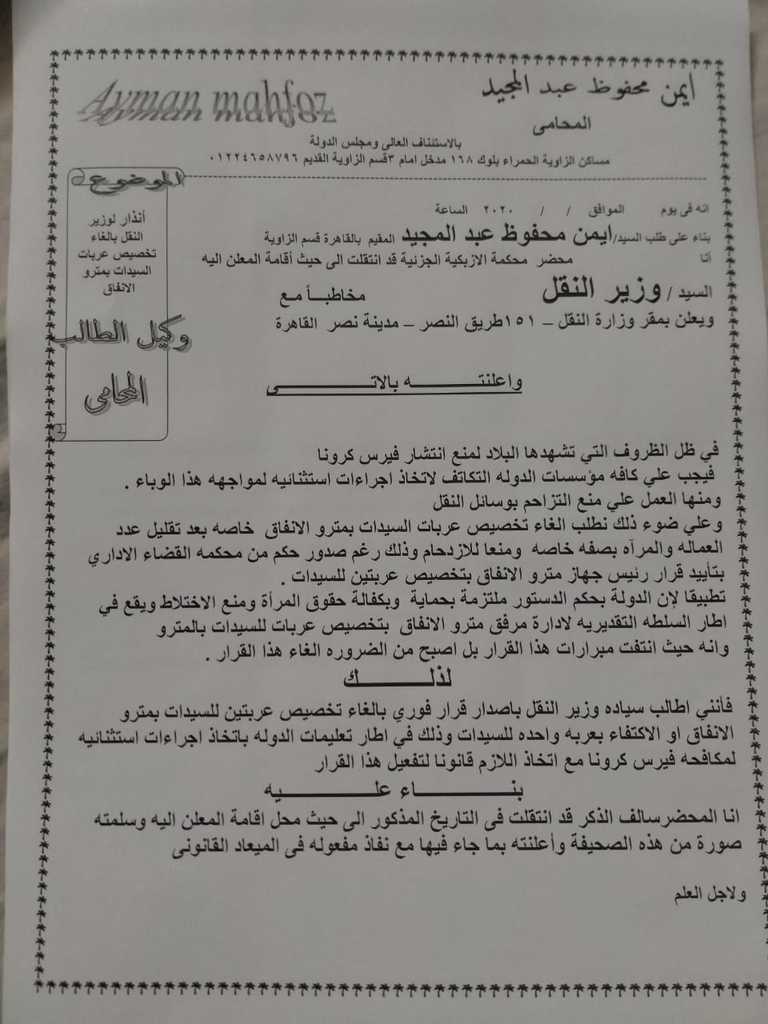 ايمن محفوظ عبد المجيد
Ayman mahfoz
المحامى
بالاستئناف العالى ومجلس الدولة
مساكن الزاوية الحمراء بلوك ١٦٨ مدخل امام ٣قسم الزاوية القديم ٠١٢٢٤٦٥٨٧٩٦
الموضوع
أنذار لوزير
النقل بالغاء
تخصيص عربات
السيدات بمترو
الانفاق
وكيل الطالب
المحامى
انه فى يوم الموافق / / ٢٠٢٠ الساعة
بناء على طلب السيد/ايمن محفوظ عبد المجيد المقيم بالقاهرة قسم الزاوية
أنا محضر محكمة الازبكية الجزئية قد انتقلت الى حيث أقامة المعلن اليه
السيد / وزير النقل مخاطبـأ مـع
ويعلن بمقر وزارة النقل – ١٥١طريق النصر – مدينة نصر القاهرة
واعلنتـــــــه بالاتـــى
في ظل الظروف التي تشهدها البلاد لمنع انتشار فيرس كرونا
فيجب علي كافه مؤسسات الدوله التكاتف لاتخاذ اجراءات استثنائيه لمواجهه هذا الوباء .
ومنها العمل علي منع التزاحم بوسائل النقل
وعلي ضوء ذلك نطلب الغاء تخصيص عربات السيدات بمترو الانفاق خاصه بعد تقليل عدد
العماله والمرآه بصفه خاصه ومنعا للازدحام وذلك رغم صدور حكم من محكمه القضاء الاداري
بتأييد قرار رئيس جهاز مترو الانفاق بتخصيص عربتين للسيدات .
تطبيقا لإن الدولة بحكم الدستور ملتزمة بحماية وبكفالة حقوق المرأة ومنع الاختلاط ويقع في
اطار السلطه التقديريه لادارة مرفق مترو الانفاق بتخصيص عربات للسيدات بالمترو
وانه حيث انتفت مبرارات هذا القرار بل اصبح من الضروره الغاء هذا القرار .
لذلـــــك
فأنني اطالب سياده وزير النقل باصدار قرار فوري بالغاء تخصيص عربتين للسيدات بمترو
الانفاق او الاكتفاء بعربه واحده للسيدات وذلك في اطار تعليمات الدوله باتخاذ اجراءات استثنائيه
لمكافحه فيرس كرونا مع اتخاذ اللازم قانونا لتفعيل هذا القرار
بنـــــاء علـــــيه
انا المحضرسالف الذكر قد انتقلت فى التاريخ المذكور الى حيث محل اقامة المعلن اليه وسلمته
صورة من هذه الصحيفة وأعلنته بما جاء فيها مع نفاذ مفعوله فى الميعاد القانونى
ولاجل العلم